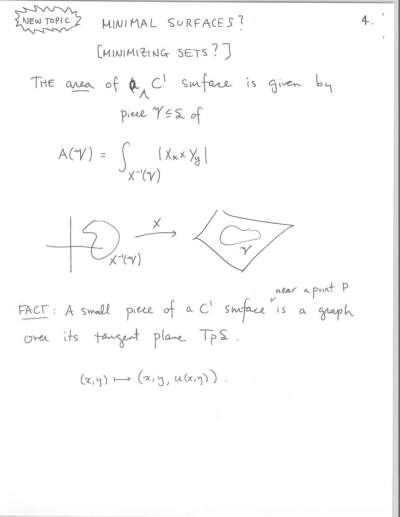 NEW TOPIC
MINIMAL SURFACES?
4.
[MINIMIZING SETS?]
THE area of a C¹ surface is given by
piece 𝒱 ⊆ S of
A(𝒱) = ∫_{X⁻¹(𝒱)} |Xₓ × Xᵧ|
X
X⁻¹(𝒱)
𝒱
near a point P
FACT: A small piece of a C¹ surface is a graph
over its tangent plane TpS.
(x,y) ↦ (x, y, u(x,y)).